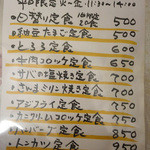 平日限定 火~金 11:30~14:00
日替り定食 10食限定 500
納豆たまご定食 500
とろろ定食 600
牛肉コロッケ定食 650
サバの塩焼き定食 700
さんまみりん定食 700
アジフライ定食 750
カニクリームコロッケ定食 750
ハンバーグ定食 850
トンカツ定食 950